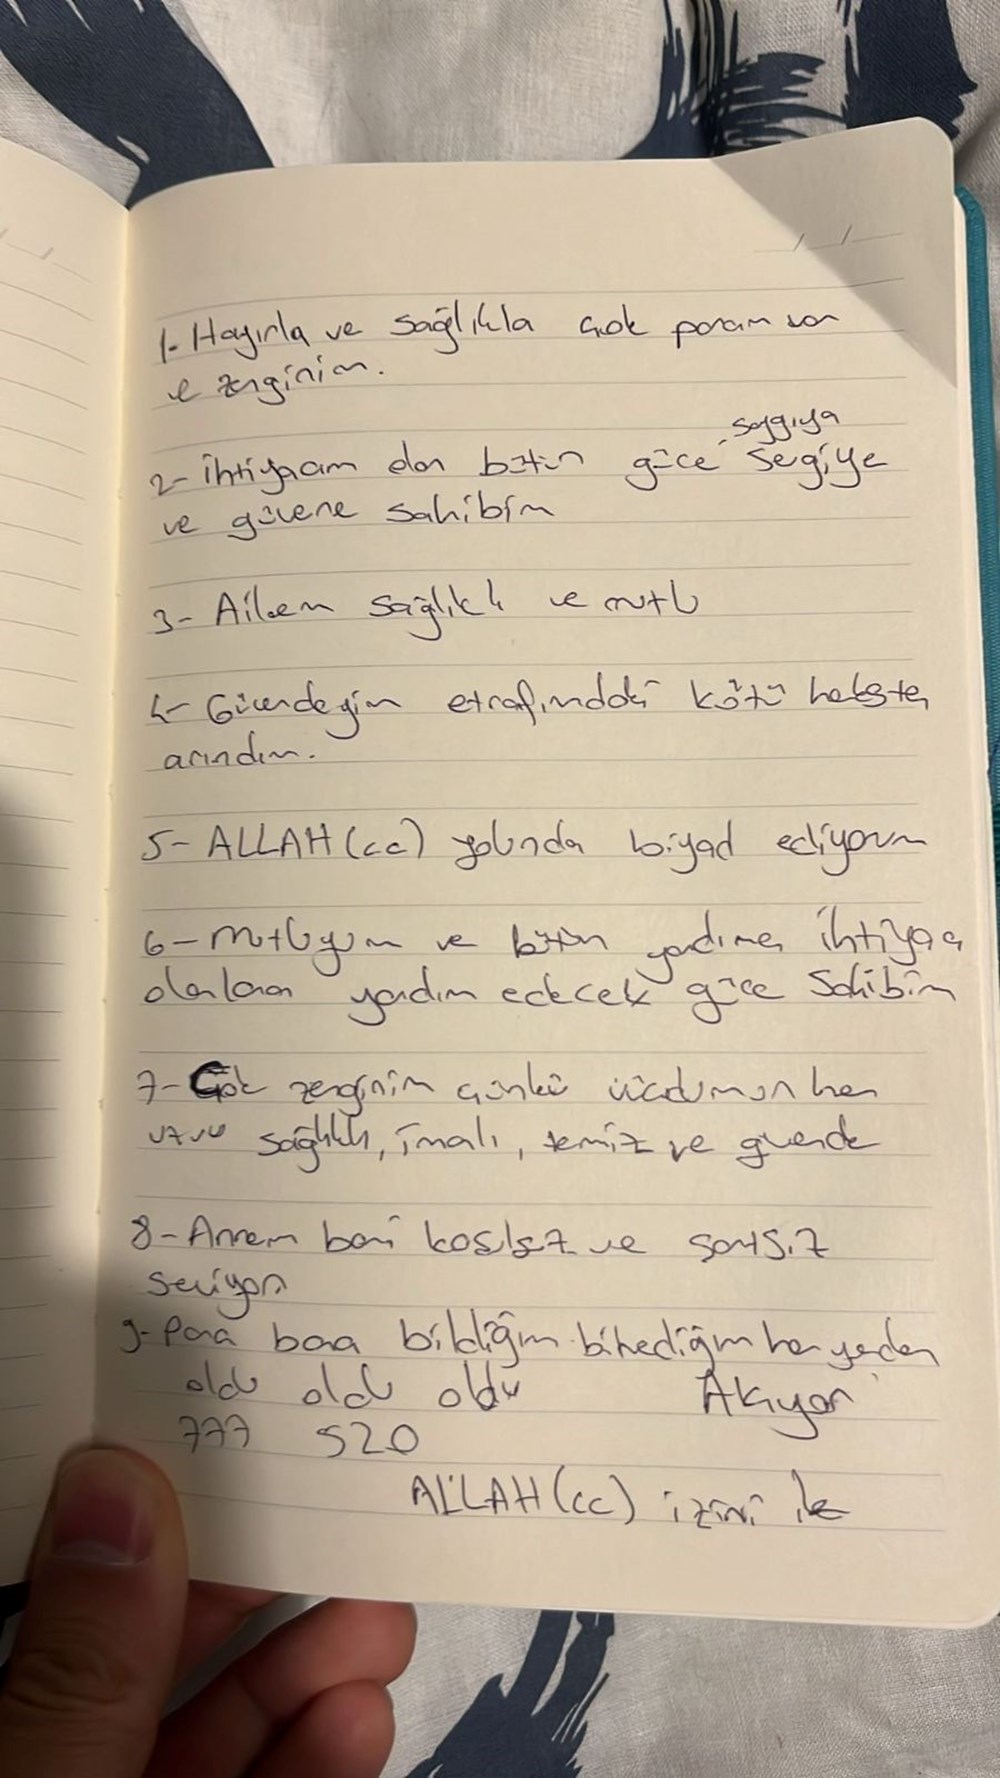 1- Hayırla ve sağlıkla çok param var
ve zenginim.
saygıya
2- İhtiyacım olan bütün güce sevgiye
ve güvene sahibim
3- Ailem sağlıklı ve mutlu
4- Güvendeyim etrafımdaki kötü herkesten
arındım.
5- ALLAH (cc) yolunda biyad ediyorum
6- mutluyum ve bütün yardıma ihtiyacı
olanlara yardım edecek güce Sahibim
7- Çok zenginim çünkü vücudumun her
uzvu sağlıklı, imalı, temiz ve güvende
8- Annem beni koşulsuz ve şartsız
seviyor
9- Para bana bildiğim bilmediğim her yerden
oldu oldu oldu Akıyor
777 520
ALLAH (cc) izini ile